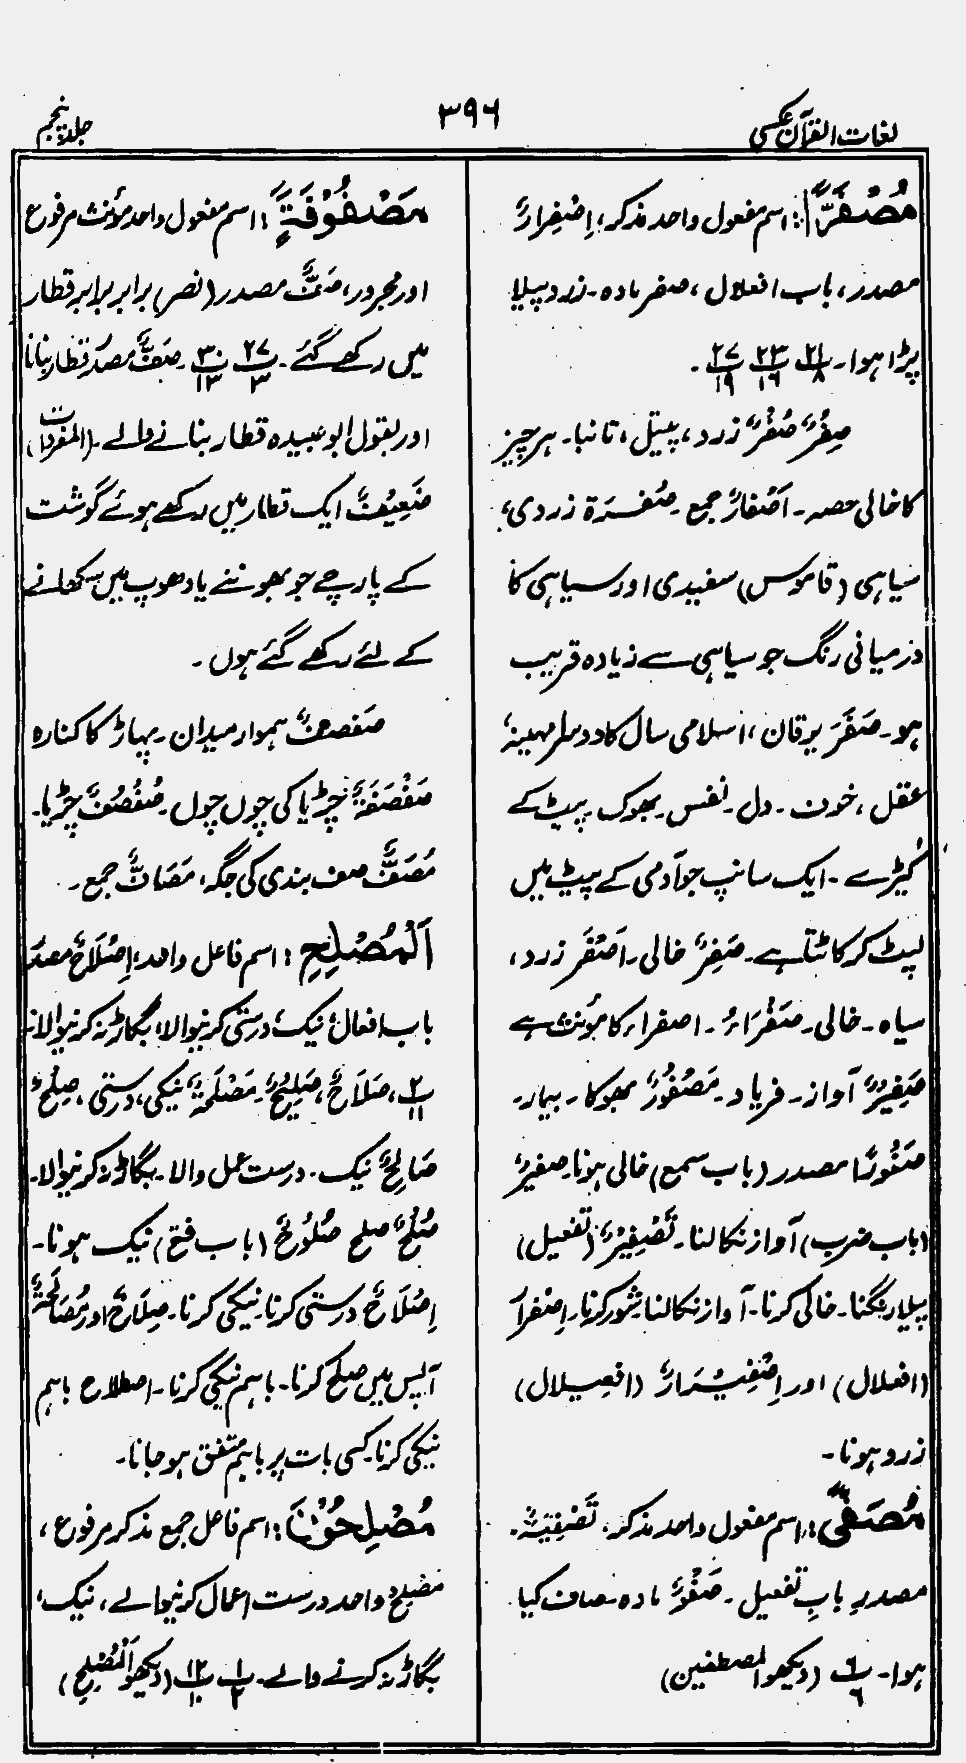 لغات القرآن عکسی
۳۹۶
جلد پنجم
مُصْفَرًّا: اسم مفعول واحد مذکر، اِصْفِرَارٌ
مصدر، باب افعلال، صفر مادہ۔ زرد پیلا
پڑا ہوا۔ پ ۲۱/۸ پ ۲۳/۱۶ پ ۲۷/۱۹۔
صِفْرٌ صُفْرٌ زرد، پیتل، تانبا۔ ہر چیز
کا خالی حصہ۔ اَصْفَارٌ جمع۔ صُفْرَۃ زردی،
سیاہی (قاموس) سفیدی اور سیاہی کا
درمیانی رنگ جو سیاہی سے زیادہ قریب
ہو۔ صَفَرَ یرقان، اسلامی سال کا دوسرا مہینہ،
عقل، خون۔ دل۔ نفس۔ بھوک۔ پیٹ کے
کیڑے۔ ایک سانپ جو آدمی کے پیٹ میں
لپٹ کر کاٹتا ہے۔ صَفِرٌ خالی۔ اَصْفَر زرد،
سیاہ۔ خالی۔ صَفْرَاءُ۔ اصفراء کا مؤنث ہے
صَفِیْرٌ آواز۔ فریاد۔ مَصْفُوْرٌ بھوکا۔ بیمار۔
صَفُوْرًا مصدر (باب سمع) خالی ہونا۔ صفیرٌ
(باب ضرب) آواز نکالنا۔ تَصْفِیْرٌ (تفعیل)
پیلا رنگنا۔ خالی کرنا۔ آواز نکالنا۔ شور کرنا۔ اِصْفِرَار
(افعلال) اور اِصْفِیْرَارٌ (افعیلال)
زرد ہونا۔
مُصَفًّی: اسم مفعول واحد مذکر، تَصْفِیَۃٌ۔
مصدر باب تفعیل۔ صَفْوٌ مادہ۔ صاف کیا
ہوا۔ پ ۲۶/۶ (دیکھو المصطفین)
مَصْفُوْفَۃٍ: اسم مفعول واحد مؤنث مرفوع
اور مجرور، صَفٌّ مصدر (نصر) برابر برابر قطار
میں رکھے گئے۔ پ ۲۷/۳ پ ۳۰/۱۳۔ صَفٌّ مصدر قطار بنانا
اور بقول ابو عبیدہ قطار بنانے والے۔ (المفردات)
صَفِیْفٌ ایک قطار میں رکھے ہوئے گوشت
کے پارچے جو بھوننے یا دھوپ میں سکھانے
کے لئے رکھے گئے ہوں۔
صَفصفٌ ہموار میدان۔ پہاڑ کا کنارہ
صَفْصَفَۃٌ چڑیا کی چوں چوں۔ صُفْصُفٌ چڑیا۔
مَصَفٌّ صف بندی کی جگہ، مَصَافٌّ جمع۔
اَلْمُصْلِحِ: اسم فاعل واحد، اِصْلَاحٌ مصدر
باب افعال، نیک، درستی کرنیوالا، بگاڑ نہ کرنیوالا۔
پ ۲/۱۱، صَلَاحٌ، صَلِیْحٌ۔ مَصْلَحَۃٌ نیکی، درستی، صِلْحٌ
صَالِحٌ نیک۔ درست عمل والا۔ بگاڑ نہ کرنیوالا۔
صُلْحٌ صلح صُلُوْحٌ (باب فتح) نیک ہونا۔
اِصْلَاحٌ درستی کرنا۔ نیکی کرنا۔ صِلَاحٌ اور مُصَالَحَۃٌ
آپس میں صلح کرنا۔ باہم نیکی کرنا۔ اصطلاح باہم
نیکی کرنا۔ کسی بات پر باہم متفق ہو جانا۔
مُصْلِحُوْنَ: اسم فاعل جمع مذکر مرفوع،
مصلح واحد درست اعمال کرنیوالے، نیک،
بگاڑ نہ کرنے والے۔ پ ۱/۲ پ ۱۲/۱۰ (دیکھو اَلْمُصْلِحِ)